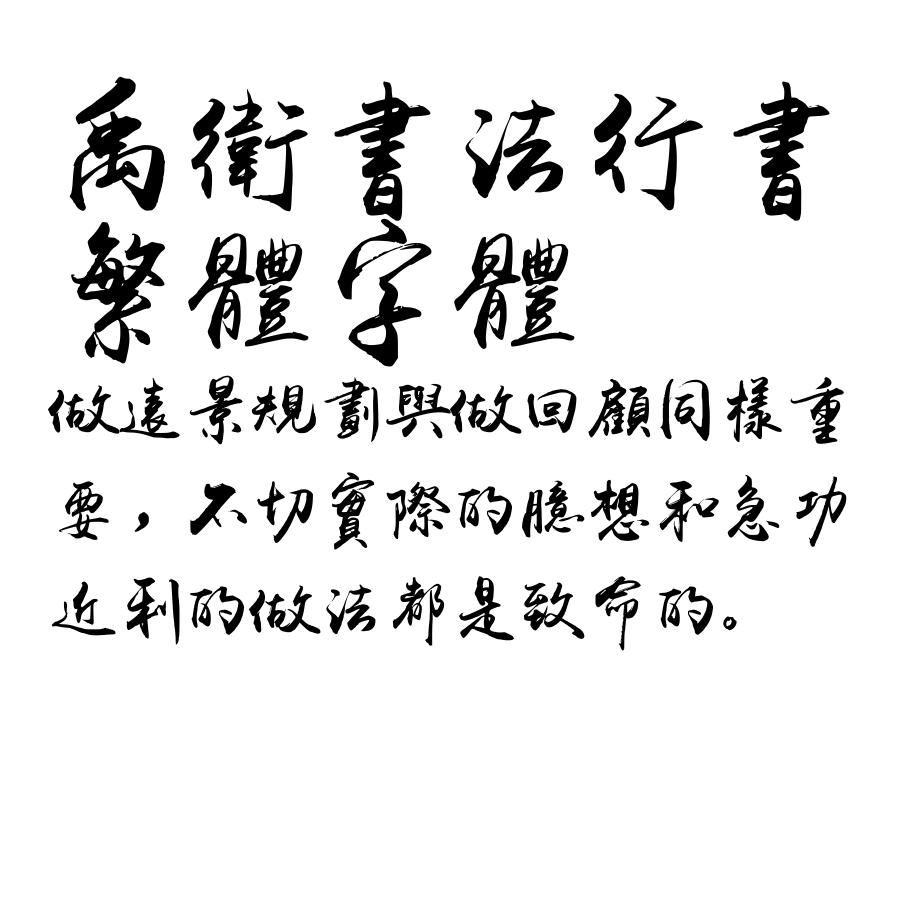 禹衛書法行書
繁體字體
做遠景規劃與做回顧同樣重
要，不切實際的臆想和急功
近利的做法都是致命的。